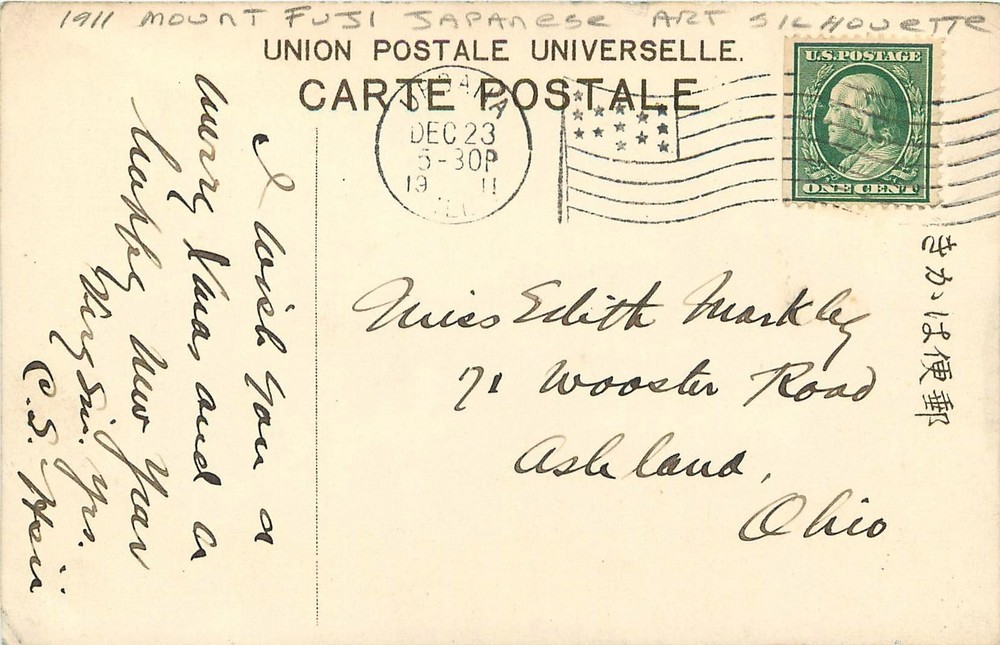 1911 MOUNT FUJI JAPANESE ART SILHOUETTE
UNION POSTALE UNIVERSELLE.
CARTE POSTALE
URBANA
DEC 23
5-30P
1911
ILL.
U.S. POSTAGE
ONE CENT
きかは便郵
I wish you a
Merry Xmas and a
happy New Year
Very Sin. yrs.
C. S.
Miss Edith Markley
71 Wooster Road
Ashland,
Ohio